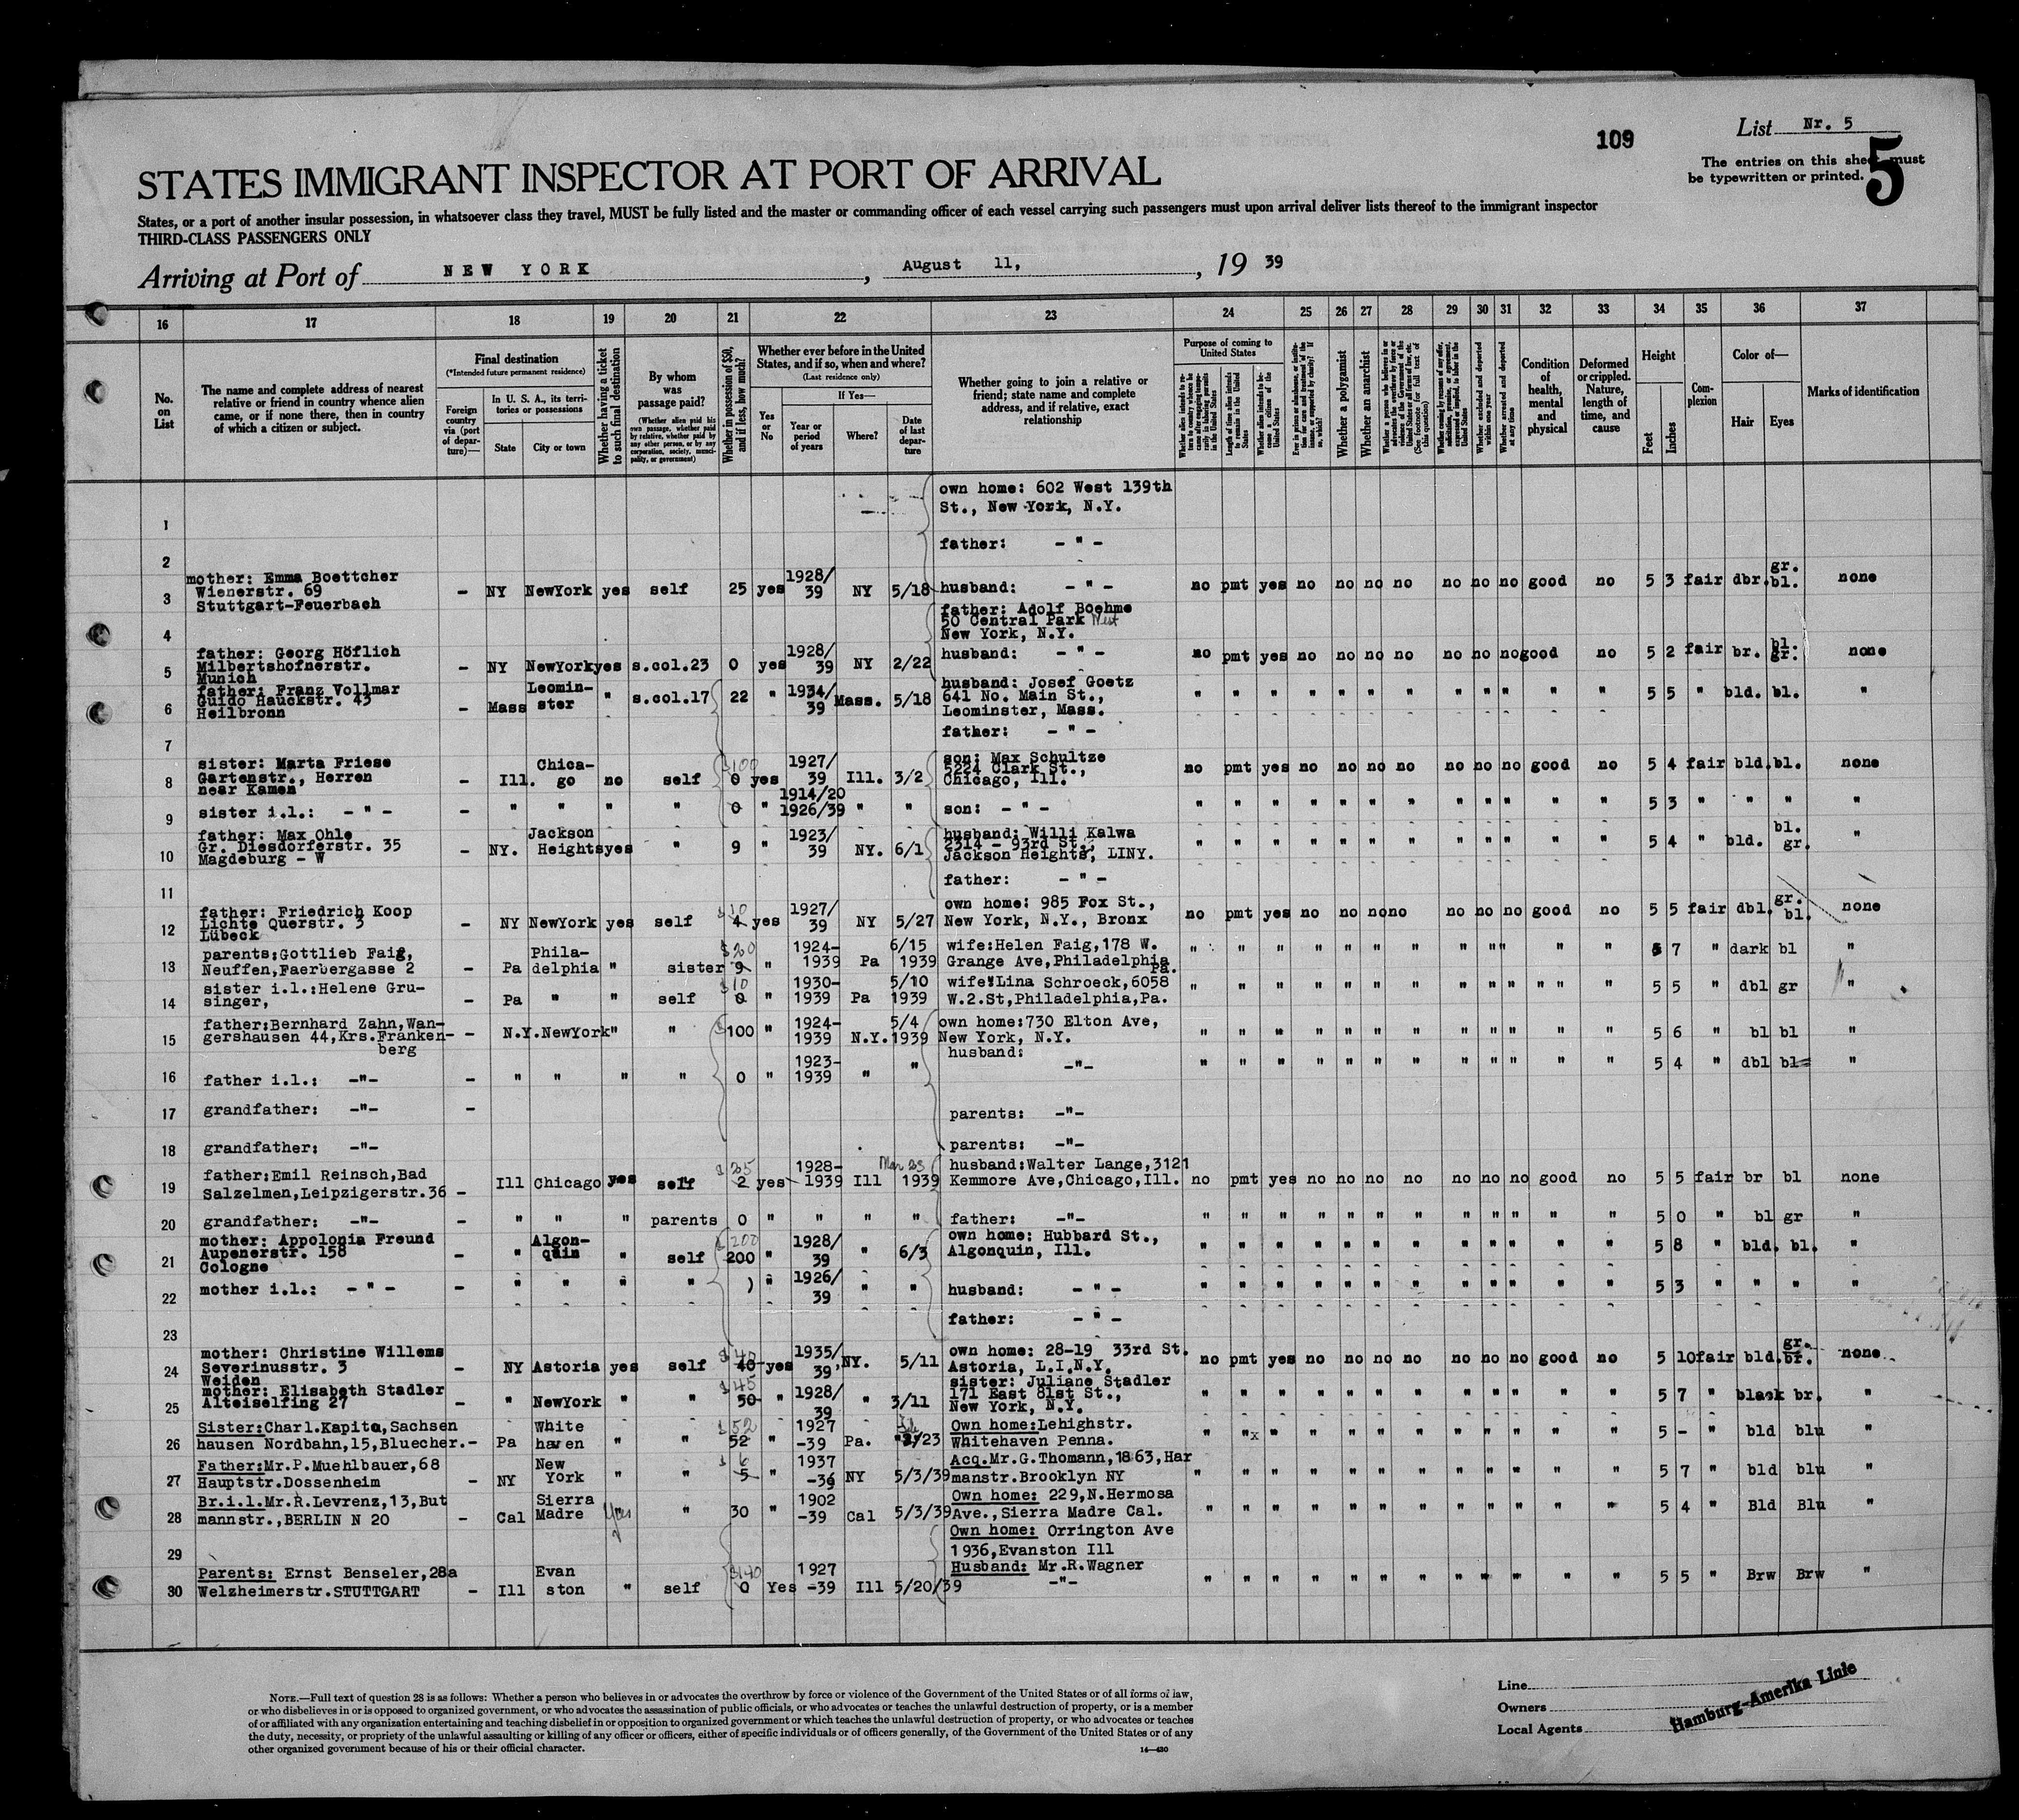 109
List Nr. 5
5
The entries on this sheet must
be typewritten or printed.
STATES IMMIGRANT INSPECTOR AT PORT OF ARRIVAL
States, or a port of another insular possession, in whatsoever class they travel, MUST be fully listed and the master or commanding officer of each vessel carrying such passengers must upon arrival deliver lists thereof to the immigrant inspector
THIRD-CLASS PASSENGERS ONLY
Arriving at Port of NEW YORK, August 11, 19 39
16 17 18 19 20 21 22 23 24 25 26 27 28 29 30 31 32 33 34 35 36 37
No. on List
The name and complete address of nearest
relative or friend in country whence alien
came, or if none there, then in country
of which a citizen or subject.
Final destination
(*Intended future permanent residence)
Foreign country via (port of departure)—
In U. S. A., its territories or possessions
State
City or town
Whether having a ticket to such final destination
By whom was passage paid?
(Whether alien paid his own passage, whether paid by relative, whether paid by any other person, or by any corporation, society, municipality, or government)
Whether in possession of $50, and if less, how much?
Whether ever before in the United
States, and if so, when and where?
(Last residence only)
Yes or No
If Yes—
Year or period of years
Where?
Date of last departure
Whether going to join a relative or
friend; state name and complete
address, and if relative, exact
relationship
Purpose of coming to United States
Length of time alien intends to remain in the United States
Whether alien intends to become a citizen of the United States
Whether a polygamist
Whether an anarchist
Whether arrested and deported at any time
Condition of health, mental and physical
Deformed or crippled. Nature, length of time, and cause
Height
Feet
Inches
Complexion
Color of—
Hair
Eyes
Marks of identification
1 own home: 602 West 139th
St., New York, N.Y.
2 father: - " -
3 mother: Emma Boettcher
Wienerstr. 69
Stuttgart-Feuerbach
- NY NewYork yes self 25 yes 1928/39 NY 5/18 husband: - " - no pmt yes no no no no no no no good no 5 3 fair dbr. gr. bl. none
4 father: Adolf Boehme
50 Central Park West
New York, N.Y.
5 father: Georg Höflich
Milbertshofnerstr.
Munich
- NY NewYork yes s.col.23 0 yes 1928/39 NY 2/22 husband: - " - no pmt yes no no no no no no no good no 5 2 fair br. bl. gr. none
6 father: Franz Vollmar
Guido Hauckstr. 43
Heilbronn
- Mass Leominster " s.col.17 22 " 1934/39 Mass. 5/18 husband: Josef Goetz
641 No. Main St.,
Leominster, Mass.
" " " " " " " " " " " " 5 5 " bld. bl. "
7 father: - " -
8 sister: Marta Friese
Gartenstr., Herren
near Kamen
- Ill. Chicago no self $100 0 yes 1927/39 Ill. 3/2 son: Max Schultze
5224 Clark St.,
Chicago, Ill.
no pmt yes no no no no no no no good no 5 4 fair bld. bl. none
9 sister i.l.: - " - - " " " " 0 " 1914/20 1926/39 " " son: - " - " " " " " " " " " " " " 5 3 " " " "
10 father: Max Ohle
Gr. Diesdorferstr. 35
Magdeburg - W
- NY. Jackson Heights yes " 9 " 1923/39 NY. 6/1 husband: Willi Kalwa
2314 - 93rd St.,
Jackson Heights, LINY.
" " " " " " " " " " " " 5 4 " bld. bl. gr. "
11 father: - " -
12 father: Friedrich Koop
Lichte Querstr. 3
Lübeck
- NY NewYork yes self $10 4 yes 1927/39 NY 5/27 own home: 985 Fox St.,
New York, N.Y., Bronx
no pmt yes no no no no no no no good no 5 5 fair dbl. gr. bl. none
13 parents:Gottlieb Faig,
Neuffen,Faerbergasse 2
- Pa Philadelphia " sister $20 9 " 1924-1939 Pa 6/15 1939 wife:Helen Faig,178 W.
Grange Ave,Philadelphia Pa.
" " " " " " " " " " " " 5 7 " dark bl "
14 sister i.l.:Helene Gru-
singer,
- Pa " " self $10 0 " 1930-1939 Pa 5/10 1939 wife:Lina Schroeck,6058
W.2.St,Philadelphia,Pa.
" " " " " " " " " " " " 5 5 " dbl gr "
15 father:Bernhard Zahn,Wan-
gershausen 44,Krs.Franken-
berg
- N.Y. NewYork " " $100 " 1924-1939 N.Y. 5/4 1939 own home:730 Elton Ave,
New York, N.Y.
" " " " " " " " " " " " 5 6 " bl bl "
16 father i.l.: -"- - " " " " 0 " 1923-1939 " " husband: -"- " " " " " " " " " " " " 5 4 " dbl bl "
17 grandfather: -"- - parents: -"-
18 grandfather: -"- parents: -"-
19 father:Emil Reinsch,Bad
Salzelmen,Leipzigerstr.36
- Ill Chicago yes self $25 2 yes 1928-1939 Ill Mar 23 1939 husband:Walter Lange,3121
Kemmore Ave,Chicago,Ill.
no pmt yes no no no no no no no good no 5 5 fair br bl none
20 grandfather: -"- - " " " parents 0 " " " " father: -"- " " " " " " " " " " " " 5 0 " bl gr "
21 mother: Appolonia Freund
Aupenerstr. 158
Cologne
- " Algonquin " self $200 200 " 1928/39 " 6/3 own home: Hubbard St.,
Algonquin, Ill.
" " " " " " " " " " " " 5 8 " bld. bl. "
22 mother i.l.: - " - - " " " " ) " 1926/39 " " husband: - " - " " " " " " " " " " " " 5 3 " " " "
23 father: - " -
24 mother: Christine Willems
Severinusstr. 3
Weiden
- NY Astoria yes self $40 40 yes 1935/39 NY. 5/11 own home: 28-19 33rd St.
Astoria, L.I.N.Y.
no pmt yes no no no no no no no good no 5 10 fair bld. gr. br. none
25 mother: Elisabeth Stadler
Alteiselfing 27
- " NewYork " " $45 50 " 1928/39 " 3/11 sister: Juliane Stadler
171 East 81st St.,
New York, N.Y.
" " " " " " " " " " " " 5 7 " black br. "
26 Sister:Charl.Kapita,Sachsen
hausen Nordbahn,15,Bluecher.
- Pa White haven " " $52 52 " 1927-39 Pa. /23 Own home:Lehighstr.
Whitehaven Penna.
" "x " " " " " " " " " " 5 - " bld blu "
27 Father:Mr.P.Muehlbauer,68
Hauptstr.Dossenheim
- NY New York " " $6 5 " 1937-39 NY 5/3/39 Acq.Mr.G.Thomann,1863,Har
manstr.Brooklyn NY
" " " " " " " " " " " " 5 7 " bld blu "
28 Br.i.l.Mr.R.Levrenz,13,But
mannstr.,BERLIN N 20
- Cal Sierra Madre yes " 30 " 1902-39 Cal 5/3/39 Own home: 229,N.Hermosa
Ave.,Sierra Madre Cal.
" " " " " " " " " " " " 5 4 " Bld Blu "
29 Own home: Orrington Ave
1936,Evanston Ill
30 Parents: Ernst Benseler,28a
Welzheimerstr.STUTTGART
- Ill Evanston " self $140 0 Yes 1927-39 Ill 5/20/39 Husband: Mr.R.Wagner
-"-
" " " " " " " " " " " " 5 5 " Brw Brw "
NOTE.—Full text of question 28 is as follows: Whether a person who believes in or advocates the overthrow by force or violence of the Government of the United States or of all forms of law,
or who disbelieves in or is opposed to organized government, or who advocates the assassination of public officials, or who advocates or teaches the unlawful destruction of property, or is a member
of or affiliated with any organization entertaining and teaching disbelief in or opposition to organized government or which teaches the unlawful destruction of property, or who advocates or teaches
the duty, necessity, or propriety of the unlawful assaulting or killing of any officer or officers, either of specific individuals or of officers generally, of the Government of the United States or of any
other organized government because of his or their official character.
14—430
Line
Owners
Local Agents
Hamburg-Amerika Linie